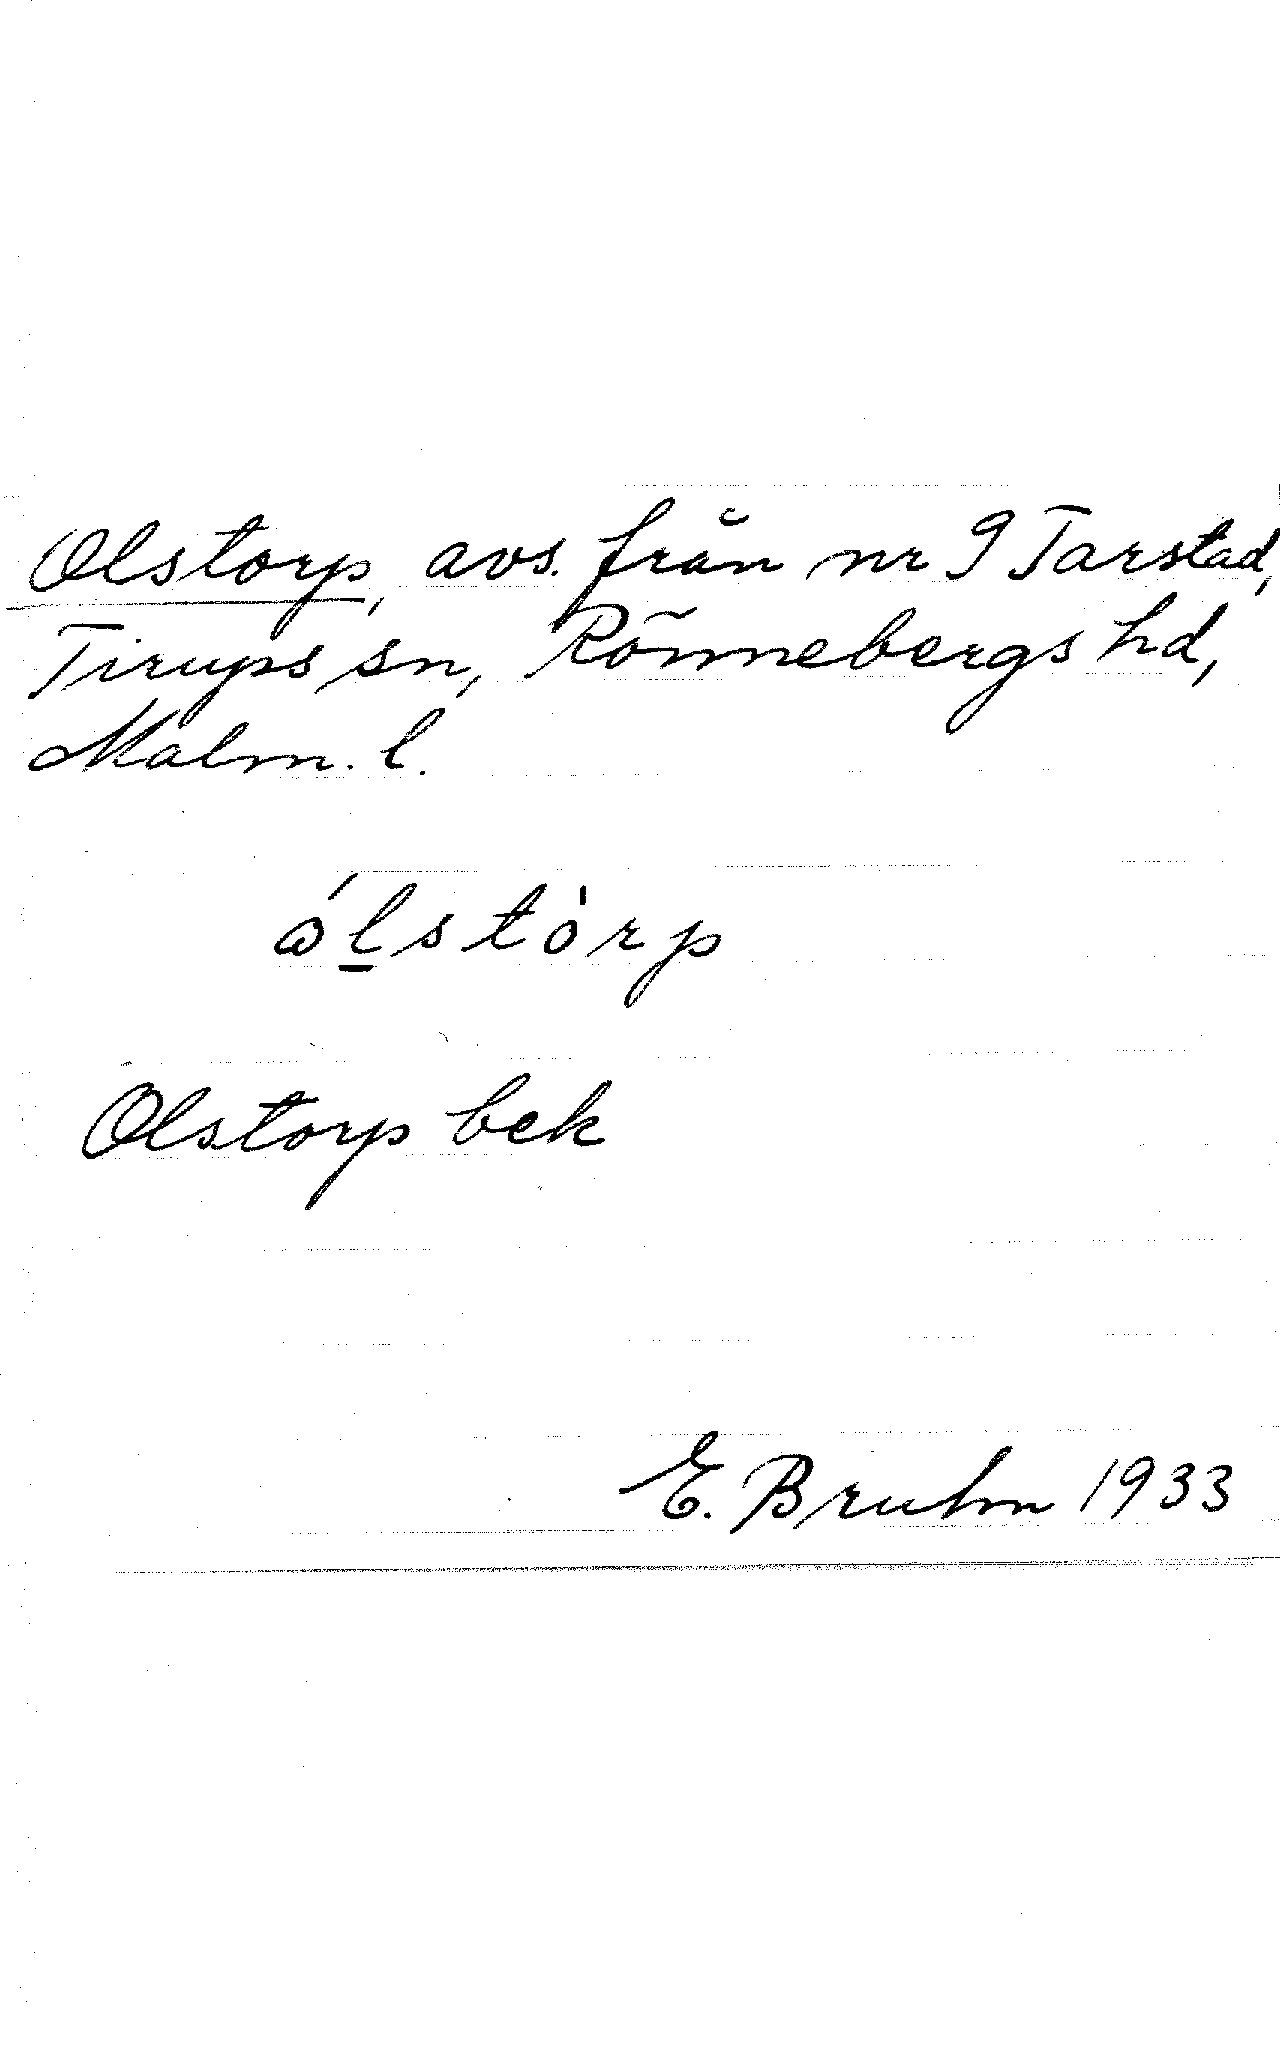 Olstorp, avs. från nr 9 Tarstad,
Tirups sn, Rönnebergs hd,
Malm. l.
ólstòrp
Olstorp bek
E. Bruhn 1933